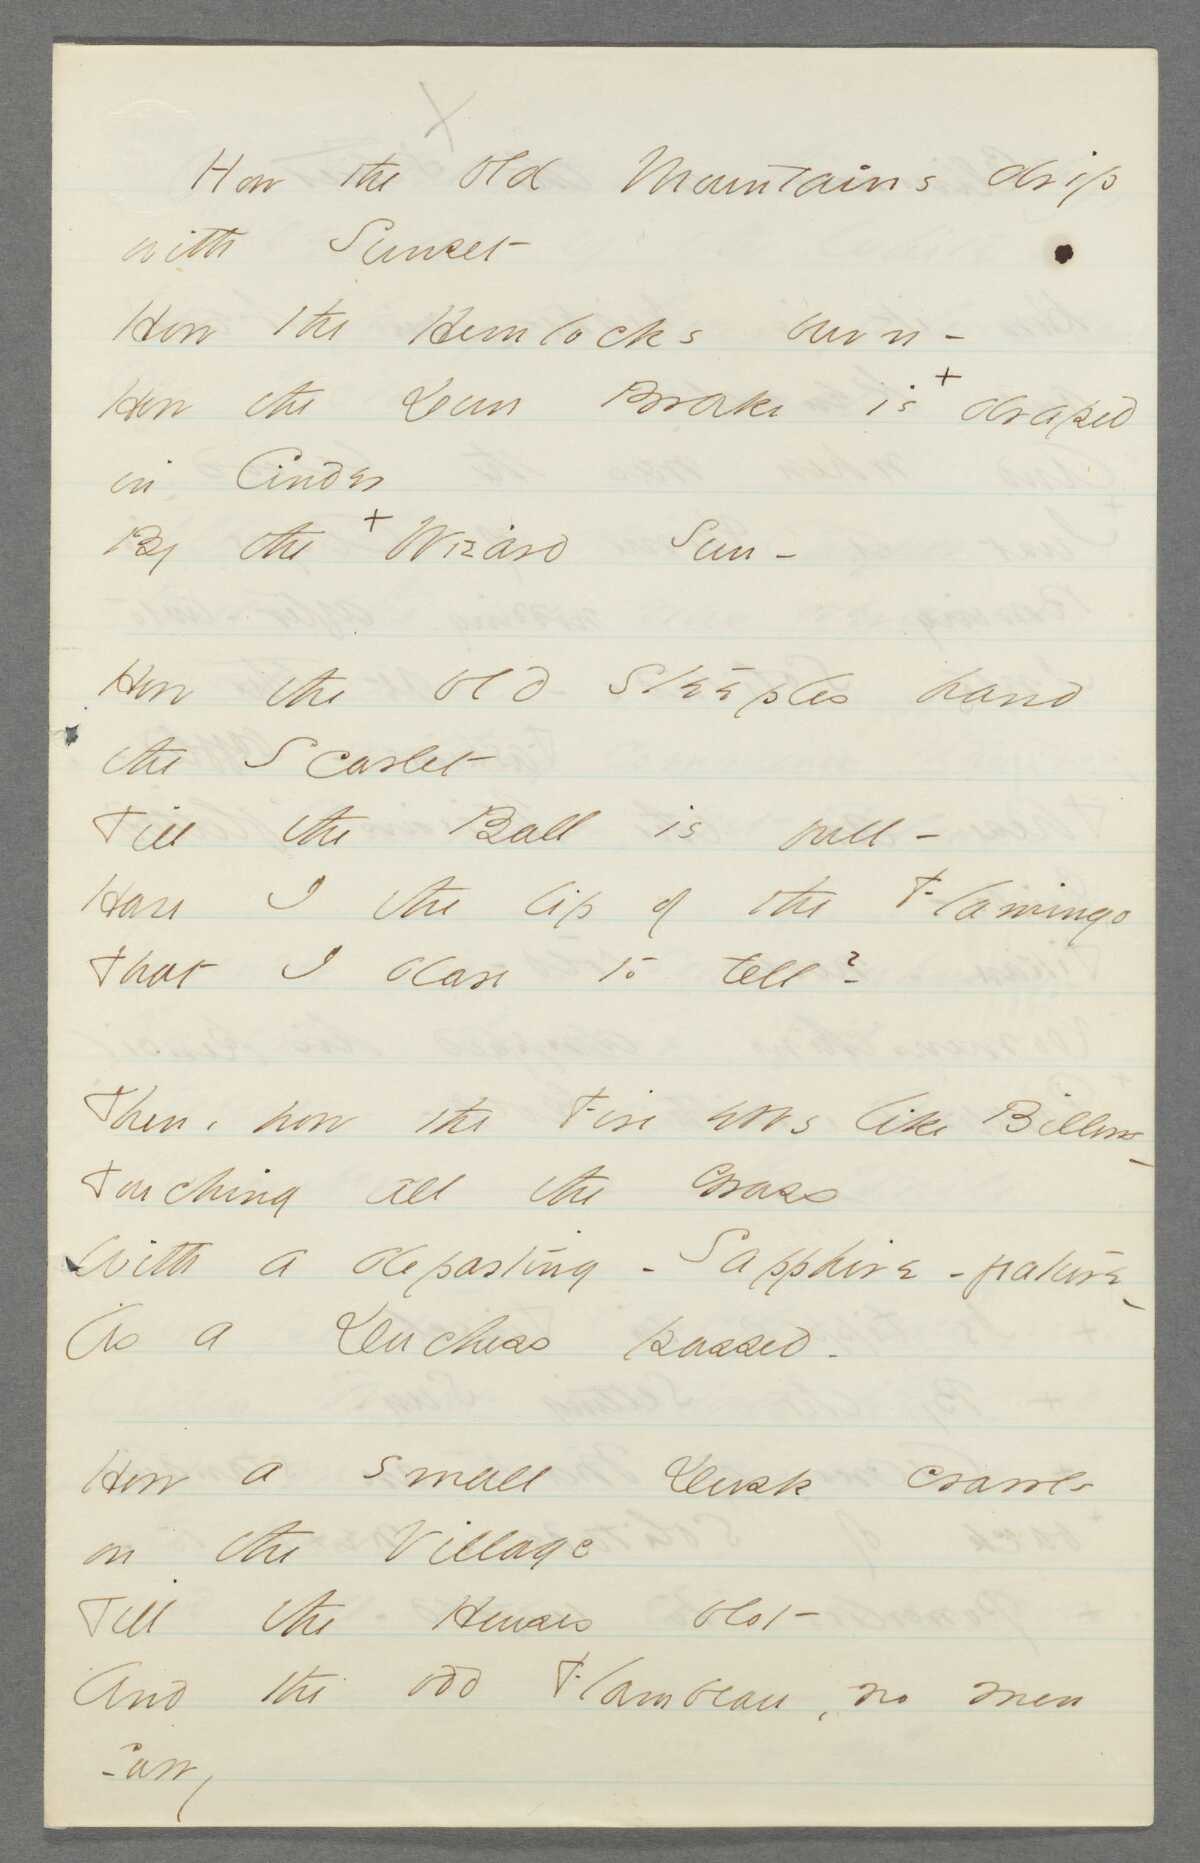 How the old Mountains drip
with Sunset
How the Hemlocks burn -
How the Dun Brake is + draped
in Cinder
By the + Wizard Sun -
How the old Steeples hand
the Scarlet
Till the Ball is full -
Have I the lip of the Flamingo
That I dare to tell?
Then, how the Fire ebbs like Billows -
Touching all the Grass
With a departing - Sapphire - feature -
As a Duchess passed -
How a small Dusk crawls
on the Village
Till the Houses blot
And the odd Flambeau, no men
carry